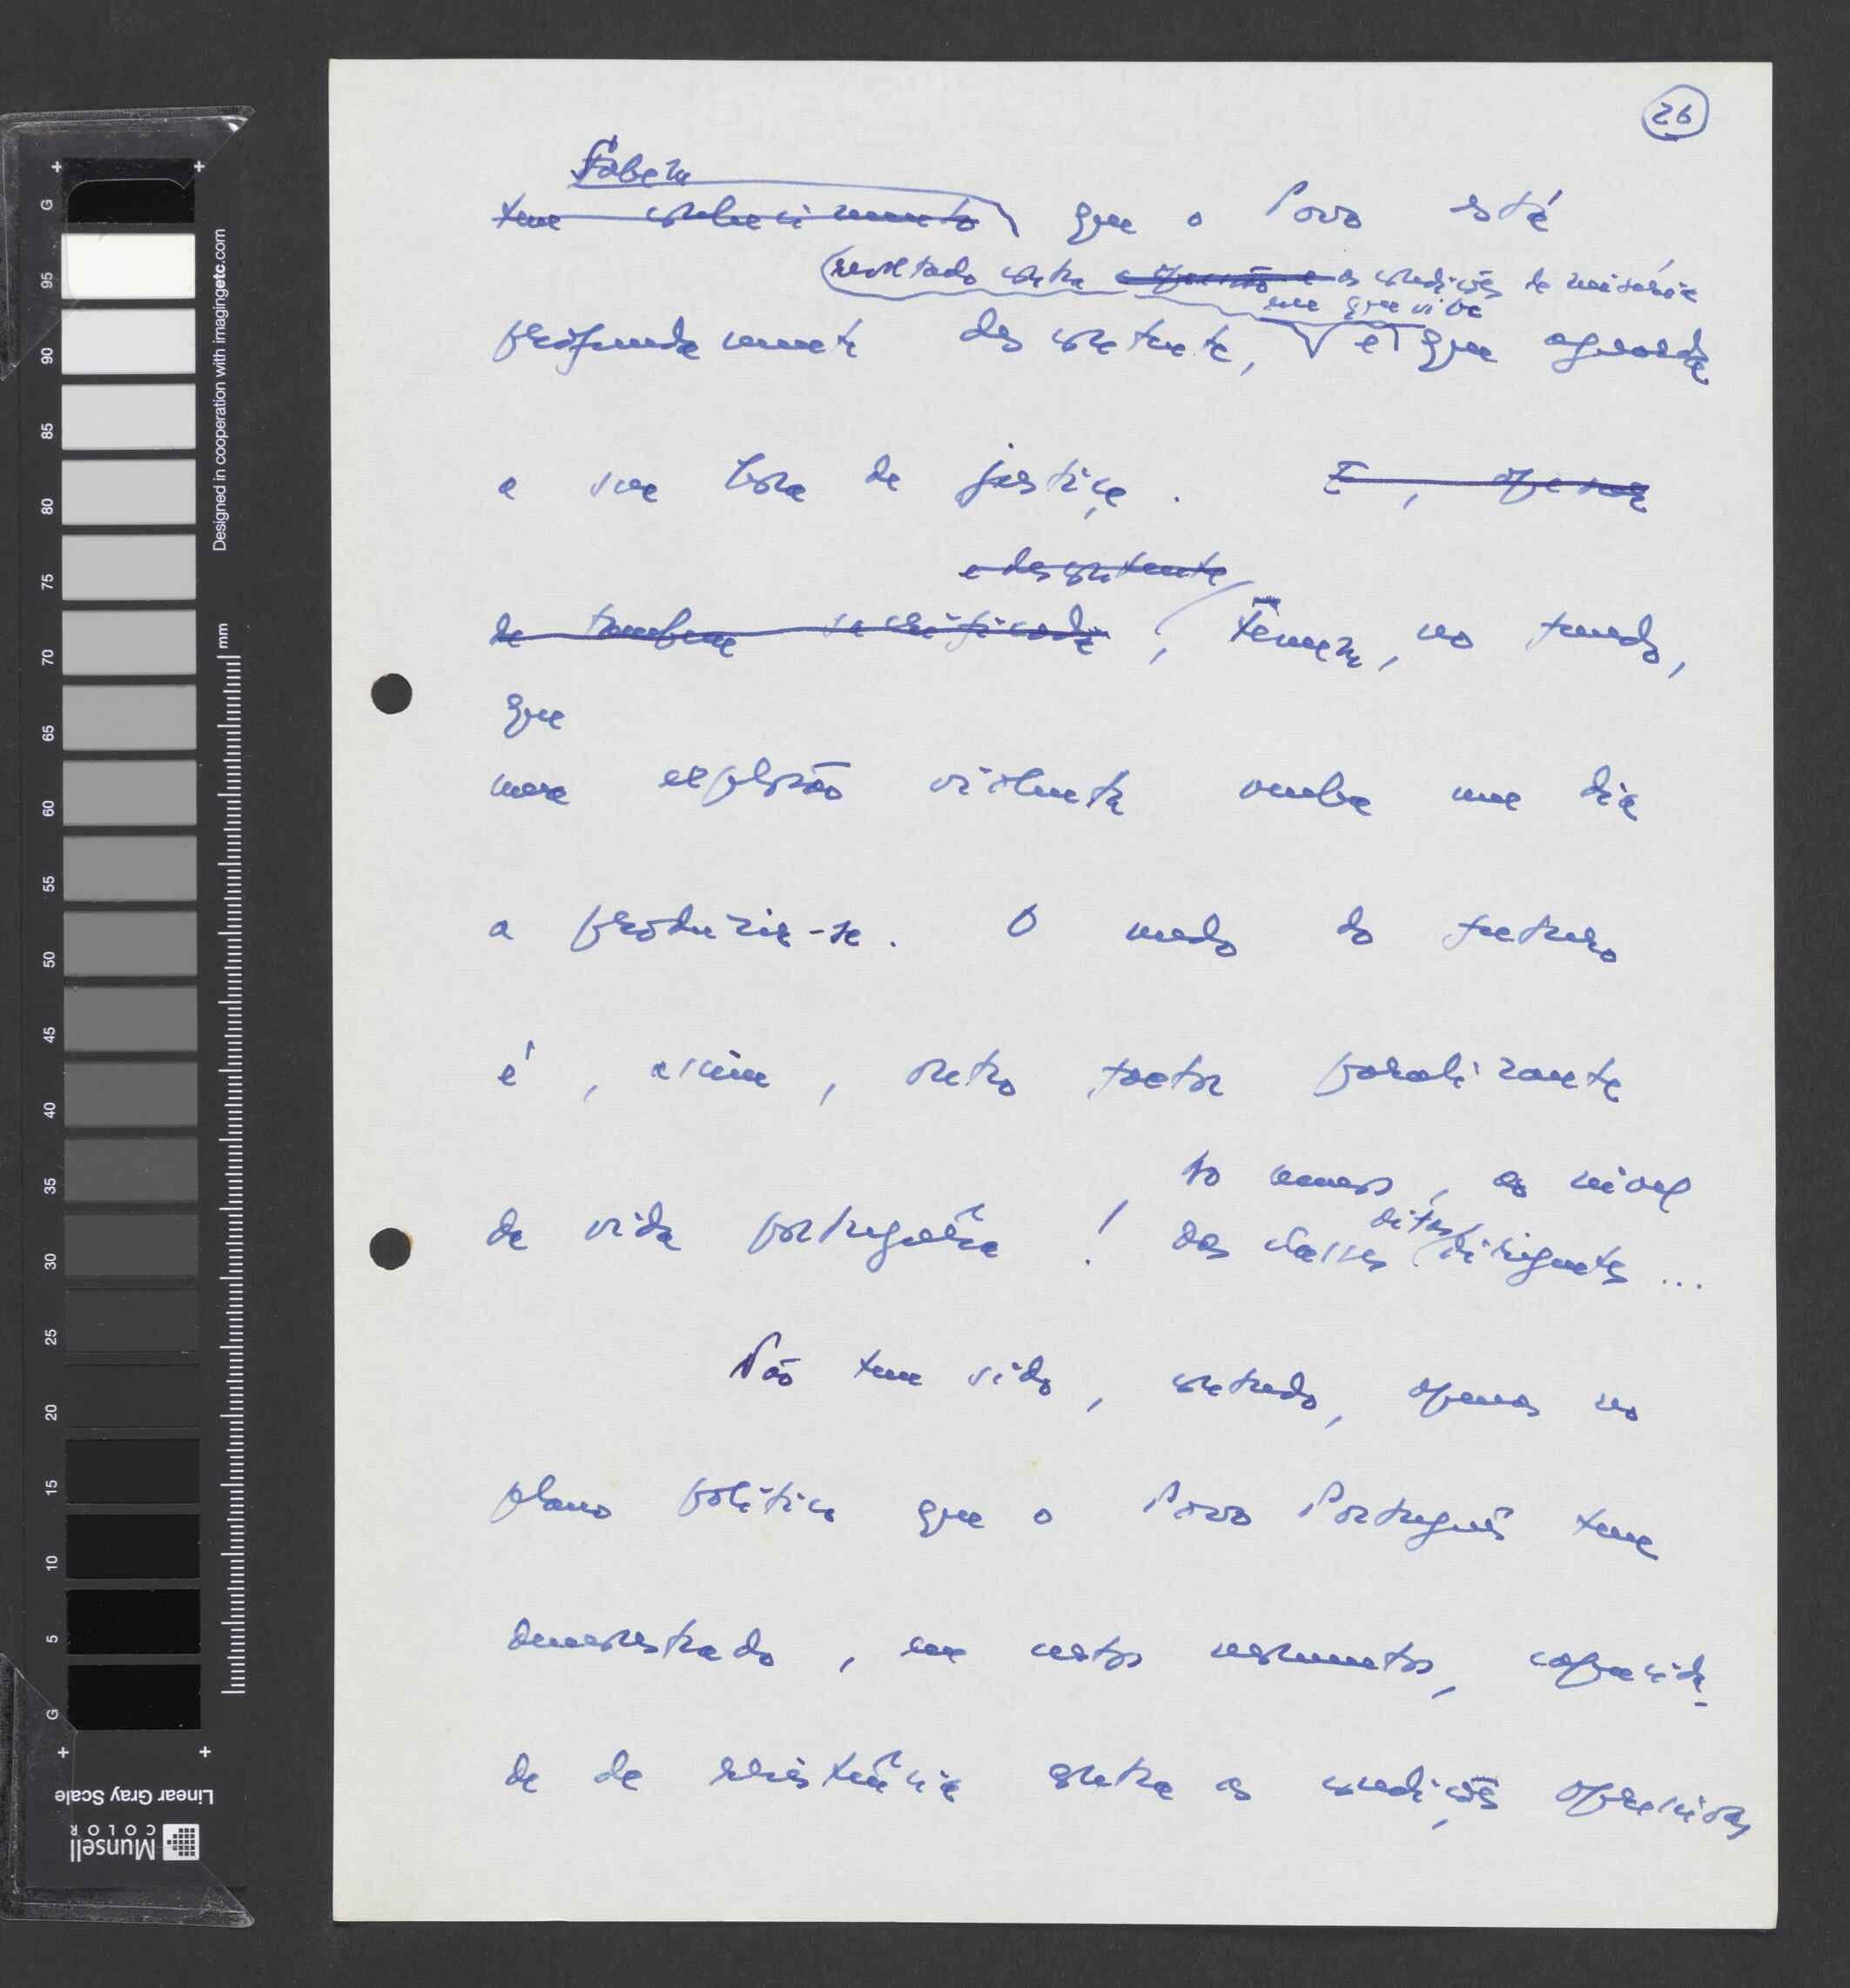 26
Sabem
tem conhecimento que o Povo está
revoltado contra a opressão e as condições de miséria
em que vive
profundamente descontente, e que aguarda
a sua hora de justiça. E, apesar
e descontente
de também sacrificada, Temem, no fundo,
que
uma explosão violenta venha um dia
a produzir-se. O medo do futuro
é, assim, outro factor paralizante
da vida portuguêsa!
ao menos, ao nível
ditas
das classes dirigentes...
Não tem sido, contudo, apenas no
plano político que o Povo Português tem
demonstrado, em certos momentos, capacida-
de de resistência contra as condições opressivas